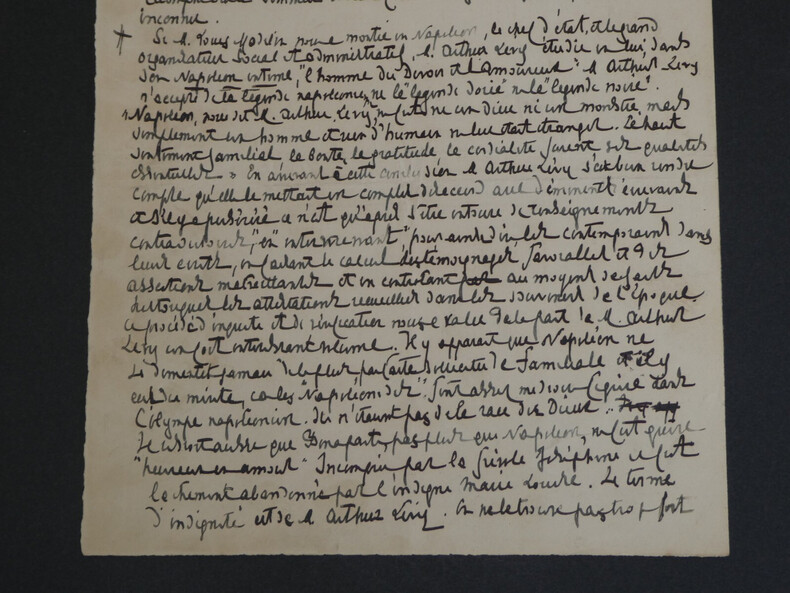 inconnu.
Si M. Louis Madelin nous a montré un Napoléon, le chef d'état, et le grand
organisateur social et administratif, M. Arthur Lévy étudie en lui, dans
son Napoléon intime, "l'homme du Devoir et l'Amoureux". M Arthur Lévy
n'accepte de la légende napoléonienne ni la "légende dorée" ni la "légende noire".
"Napoléon, nous dit M. Arthur Lévy, ne fut ni un Dieu ni un monstre, mais
simplement un homme et rien d'humain ne lui était étranger. Le haut
sentiment familial, la bonté, la gratitude, la cordialité furent ses qualités
essentielles". En arrivant à cette conclusion M Arthur Lévy s'est bien rendu
compte qu'elle le mettait en complet désaccord avec d'éminents écrivains
et s'il y a persévéré ce n'est qu'après s'être entouré de renseignements
contradictoires, "en intervenant, pour ainsi dire, les contemporains dans
leurs écrits, en faisant le calcul des témoignages favorables et des
assertions malveillantes et en contrôlant au moyen de faits
distingués les attestations recueillies dans les souvenirs de l'époque".
Ce procédé d'enquête et de vérification nous a valu de la part de M. Arthur
Lévy un fort intéressant volume. Il y apparaît que Napoléon ne
se démentit jamais de la plus parfaite sollicitude familiale et il y
eut du mérite, car les "Napoléonides" font assez médiocre figure dans
l'Olympe napoléonien. Ils n'étaient pas de la race des Dieux..
Je crois aussi que Bonaparte, pas plus que Napoléon, ne fut guère
"heureux en amour". Incompris par la frivole Joséphine il fut
lâchement abandonné par l'indigne Marie Louise. Le terme
d'indignité est de M Arthur Lévy. On ne le trouve pas trop fort